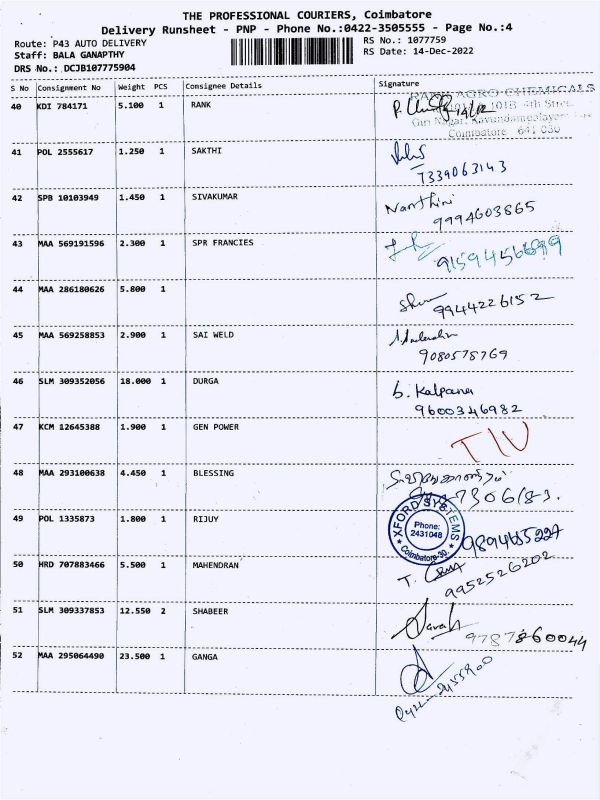 THE PROFESSIONAL COURIERS, Coimbatore
Delivery Runsheet - PNP - Phone No.:0422-3505555 - Page No.:4
Route: P43 AUTO DELIVERY
RS No.: 1077759
Staff: BALA GANAPTHY
RS Date: 14-Dec-2022
DRS No.: DCJB107775904
S No Consignment No Weight PCS Consignee Details Signature
40 KDI 784171 5.100 1 RANK
RANK AGRO CHEMICALS
101B 4th Street
Giri Nagar, Kavundampalayam
Coimbatore 641 030
41 POL 2555617 1.250 1 SAKTHI
7339063143
42 SPB 10103949 1.450 1 SIVAKUMAR Nanthini
9994603865
43 MAA 569191596 2.300 1 SPR FRANCIES
44 MAA 286180626 5.800 1
9944226152
45 MAA 569258853 2.900 1 SAI WELD
9080578769
46 SLM 309352056 18.000 1 DURGA b. Kalpana
9600346982
47 KCM 12645388 1.900 1 GEN POWER
48 MAA 293100638 4.450 1 BLESSING
49 POL 1335873 1.800 1 RIJUY
XFORD SYSTEMS
Phone:
2431048
Coimbatore-30.
50 HRD 707883466 5.500 1 MAHENDRAN
9952526202
51 SLM 309337853 12.550 2 SHABEER
9787860044
52 MAA 295064490 23.500 1 GANGA